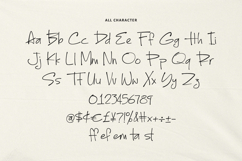 ALL CHARACTER
Aa Bb Cc Dd Ee Ff Gg Hh Ii
Jj Kk Ll Mm Nn Oo Pp Qq Rr
Ss Tt Uu Vv Ww Xx Yy Zz
0123456789
@$€£¥?!%&H×+÷=-
ff ef em ta st